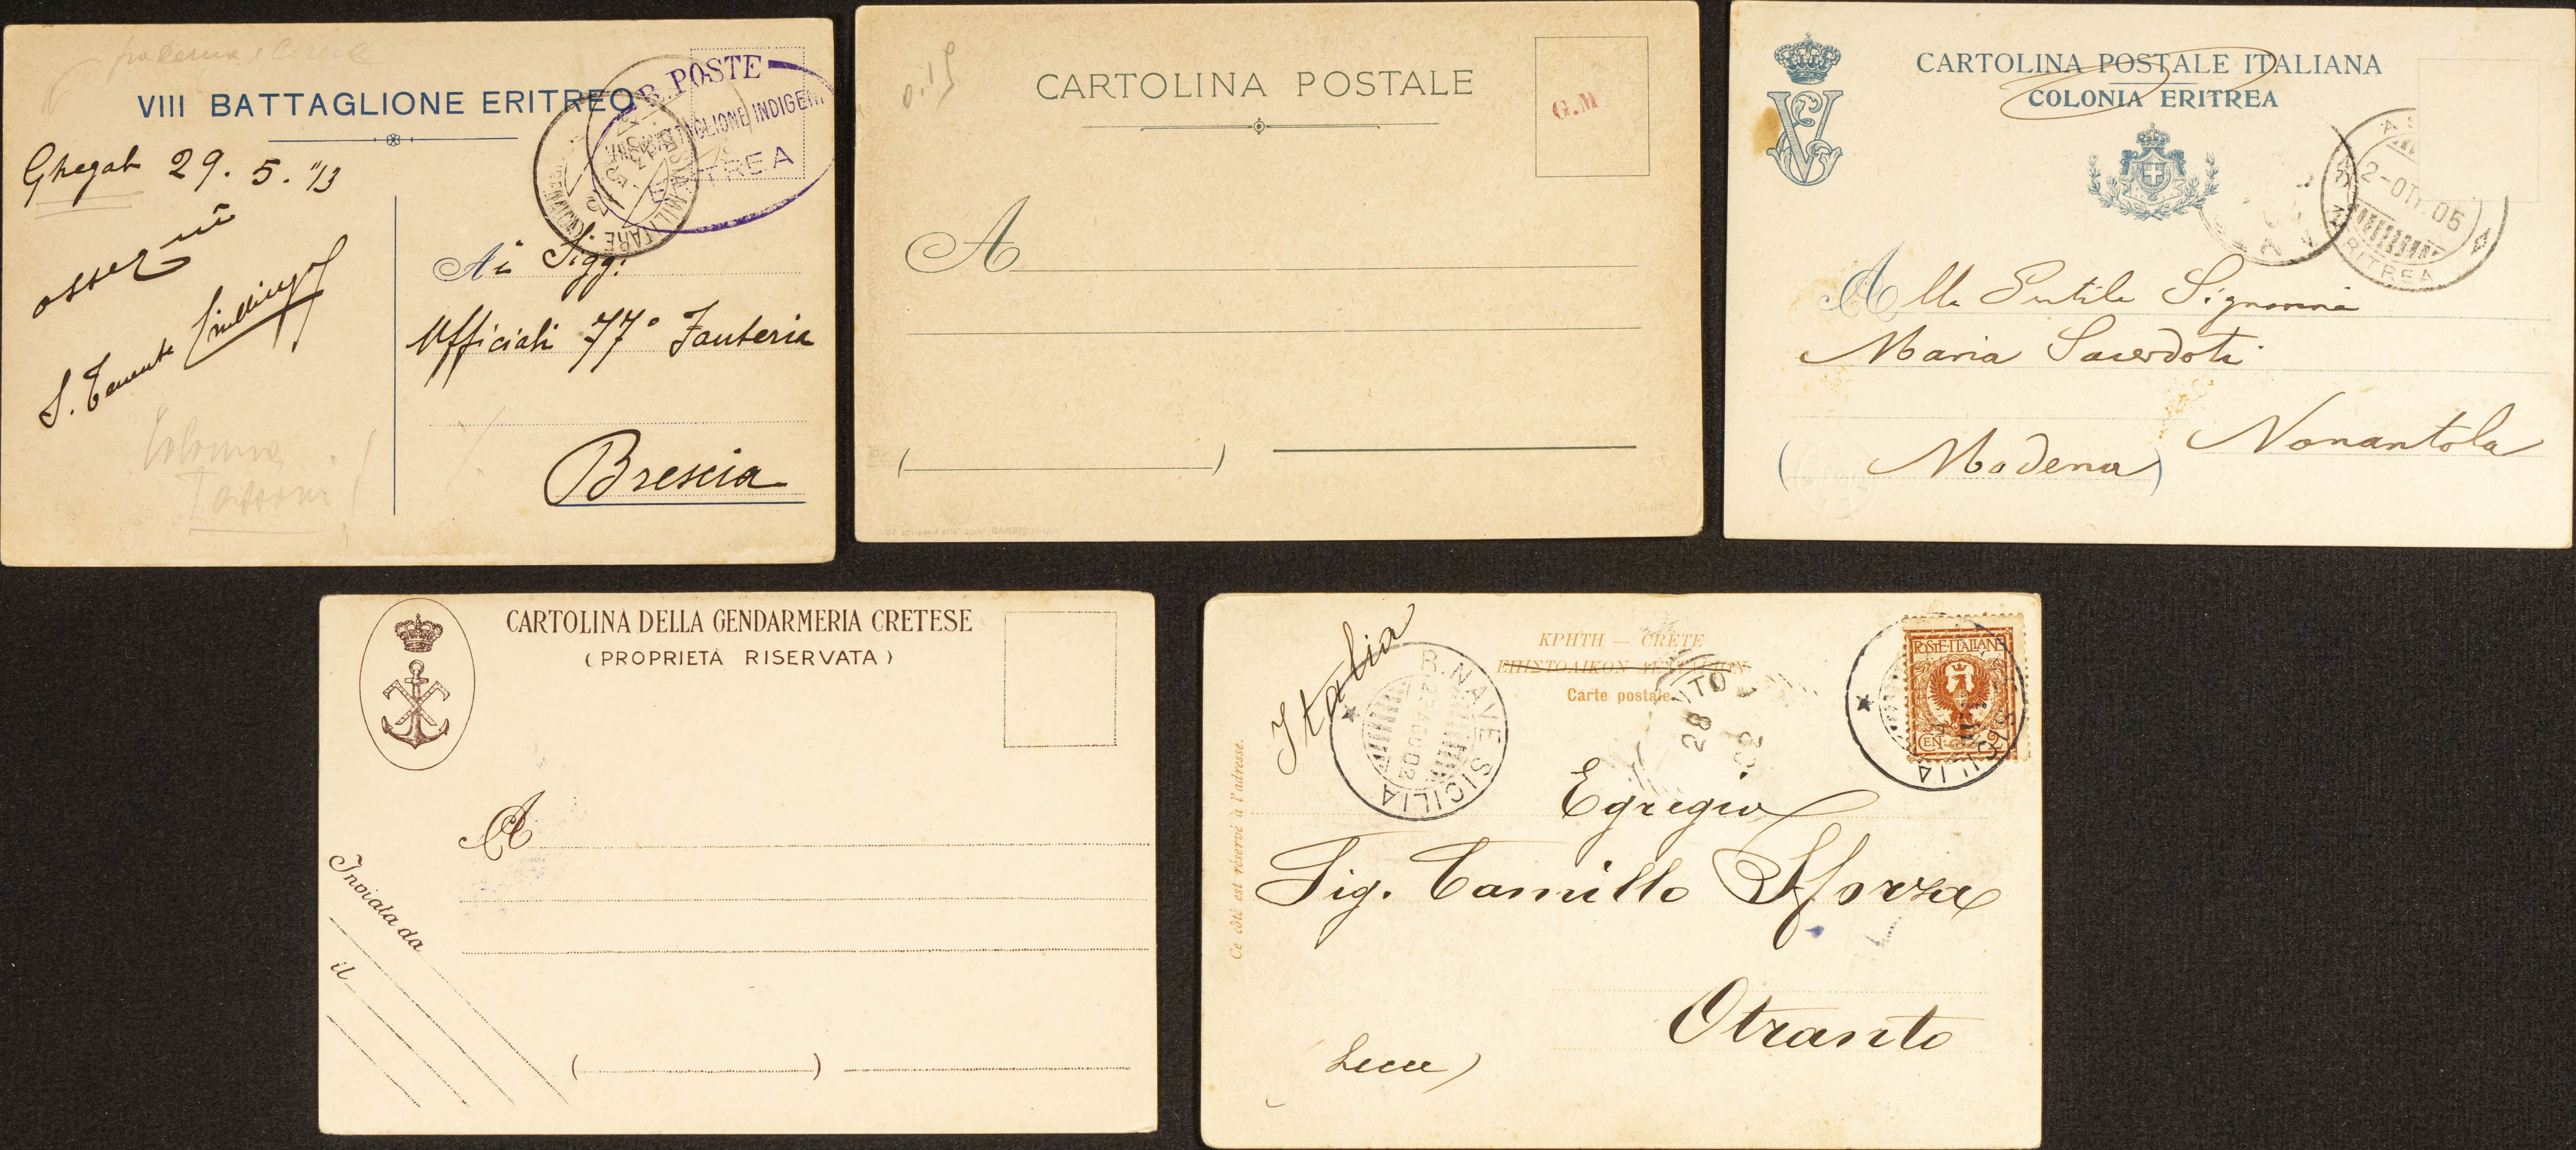 VIII BATTAGLIONE ERITREO
R. POSTE
BATTAGLIONE INDIGENI
ERITREA
MILITARE
Ghegab 29. 5. "13
ossequi
S. Tenente
Ai Sigg:
Ufficiali 77° Fanteria
Brescia
Colonna
0.15
CARTOLINA POSTALE
G.M
A
( )
CARTOLINA POSTALE ITALIANA
COLONIA ERITREA
2-OTT.05
ERITREA
Alla Gentile Signorina
Maria Sacerdoti
Nonantola
( Modena )
CARTOLINA DELLA GENDARMERIA CRETESE
( PROPRIETÀ RISERVATA )
A
Inviata da
il
( )
Italia
ΚΡΗΤΗ — CRÈTE
ΕΠΙΣΤΟΛΙΚΟΝ ΔΕΛΤΑΡΙΟΝ
Carte postale.
R. NAVE SICILIA
22 AGO 02
28
POSTE·ITALIANE
CEN. 2
SICILIA
Ce côté est réservé à l'adresse.
Egregio
Sig. Camillo Sforza
Otranto
( Lecce )